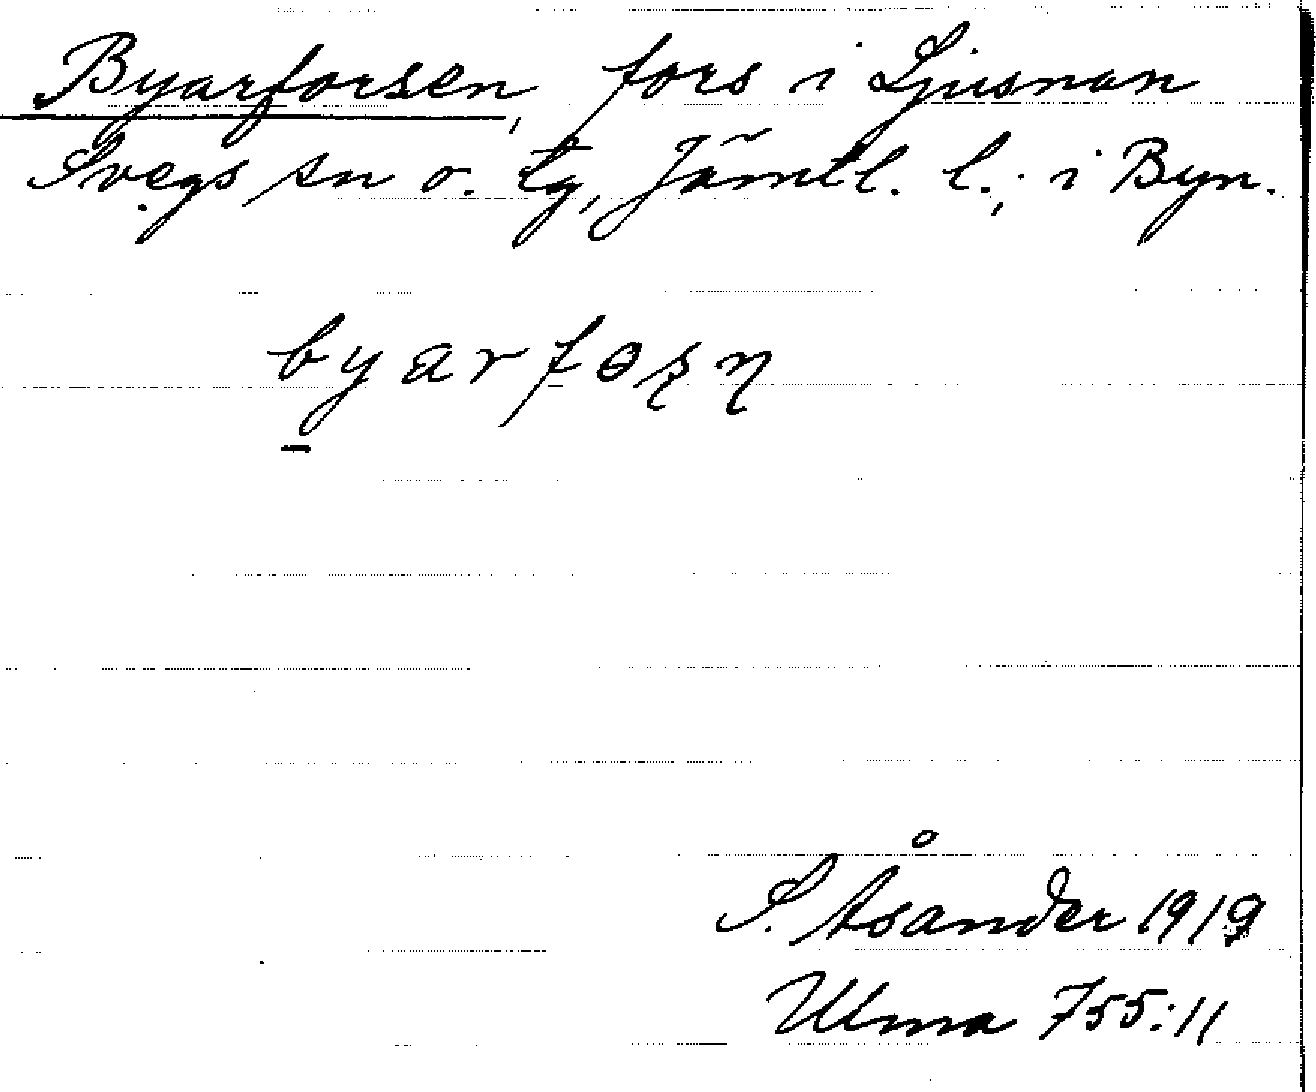 Byarforsen, fors i Ljusnan
Svegs sn o. tg, Jämtl. l.; i Byn.
byarfɵʂn̥
S. Åsander 1919
Ulma 755:11